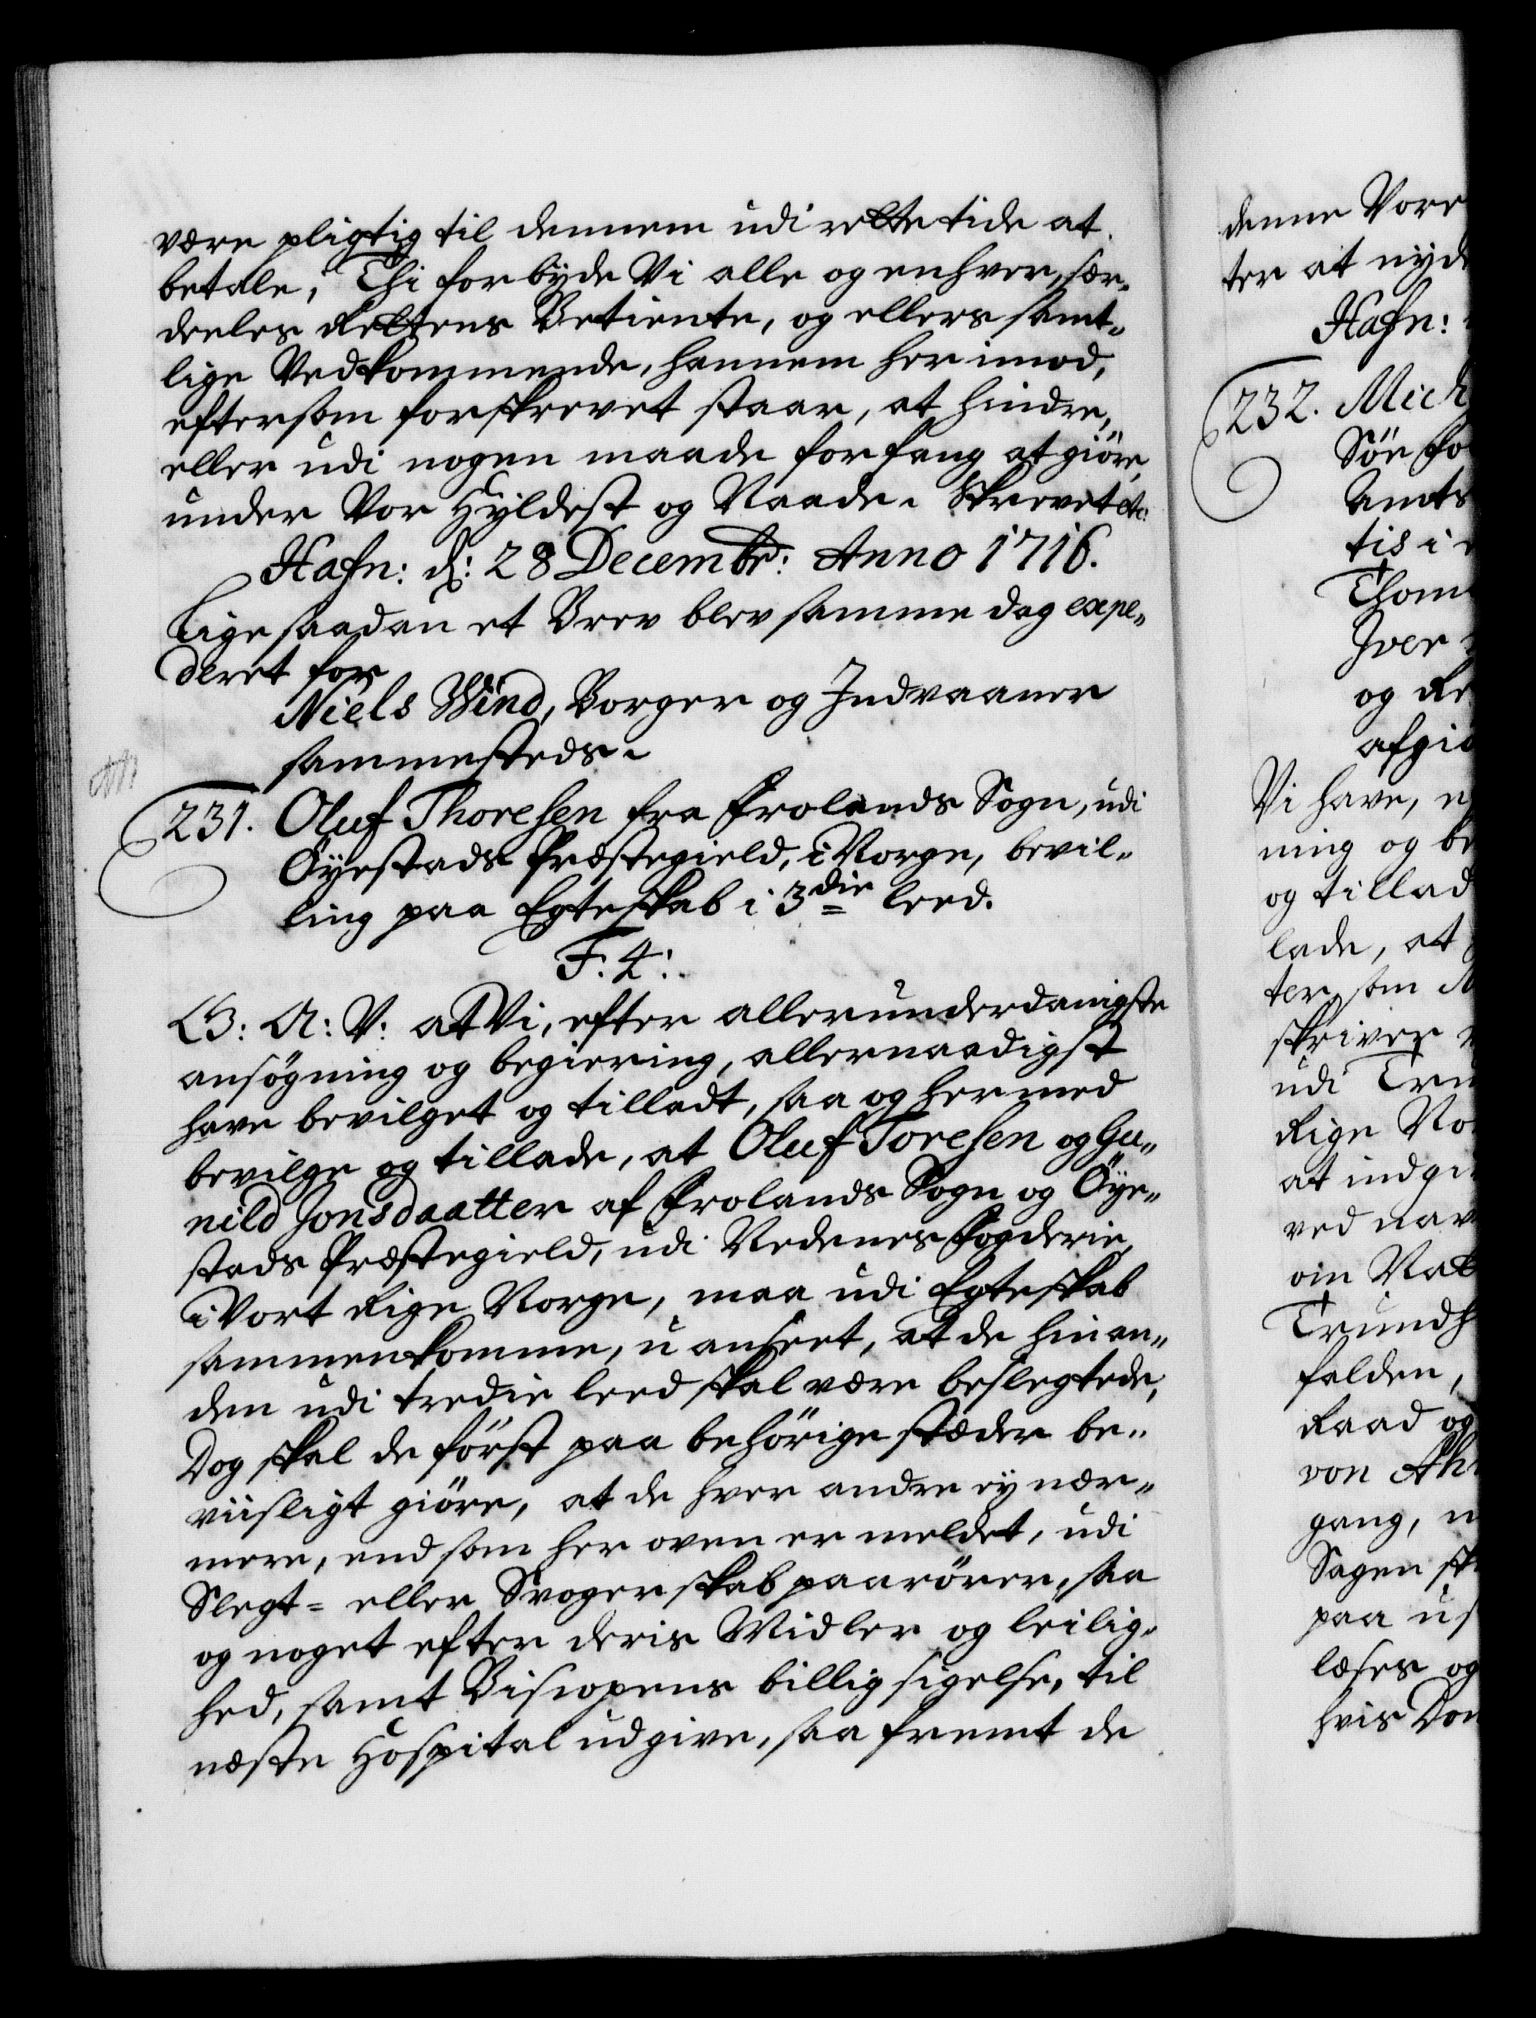 være pligtig til dennem udi rette tide at
betale, Thi forbyde Vi alle og enhver, sær„
deeles Rettens Betiente, og ellers samt„
lige Vedkommende, hannem her imod,
eftersom forskrevet staar, at hindre,
eller udi nogen maade forfang at giöre,
under Vor Hyldest og Naade. Skrevet etc:
Hafn: d: 28 Decembr: Anno 1716.
Lige saadan et Brev blev samme dag expe„
deret for
Niels Wind, Borger og Indvaaner
sammesteds.
231. Oluf Thoresen fra Frolands Sogn, udi
Öyestads Præstegield, i Norge, bevil„
ling paa Egteskab i 3die leed.
F. 4:
G: A: V: at Vi, efter allerunderdanigste
ansögning og begiering, allernaadigst
have bevilget og tilladt, saa og hermed
bevilge og tillade, at Oluf Toresen og Gu„
nild Jonsdaatter af Frolands Sogn og Öye„
stads Præstegield, udi Nedenes Fogderie,
i Vort Rige Norge, maa udi Egteskab
sammenkomme, uanseet, at de hinan„
den udi tredie leed skal være beslegtede,
Dog skal de först paa behörige stæder be„
viisligt giöre, at de hver andre ey nær„
mere, end som her oven er meldet, udi
Slegt= eller Svogerskab paarörer, saa
og noget efter deris Midler og leilig„
hed, samt Biscopens billigsigelse, til
næste Hospital udgive, saa fremt de
denne Vore
ter at nyde
Hafn:
232. Mich
Sön fo
Amts
tis i
Thom
Iver
og Re
afgiö
Vi have,
ning og be
og tillad
lade, at
ter, som
skriver
udi Tru
Rige No
at indgi
ved nav
Trundh
falden,
Raad og
von Ah
gang,
Sagen sk
paa
læses og
hvis Dom